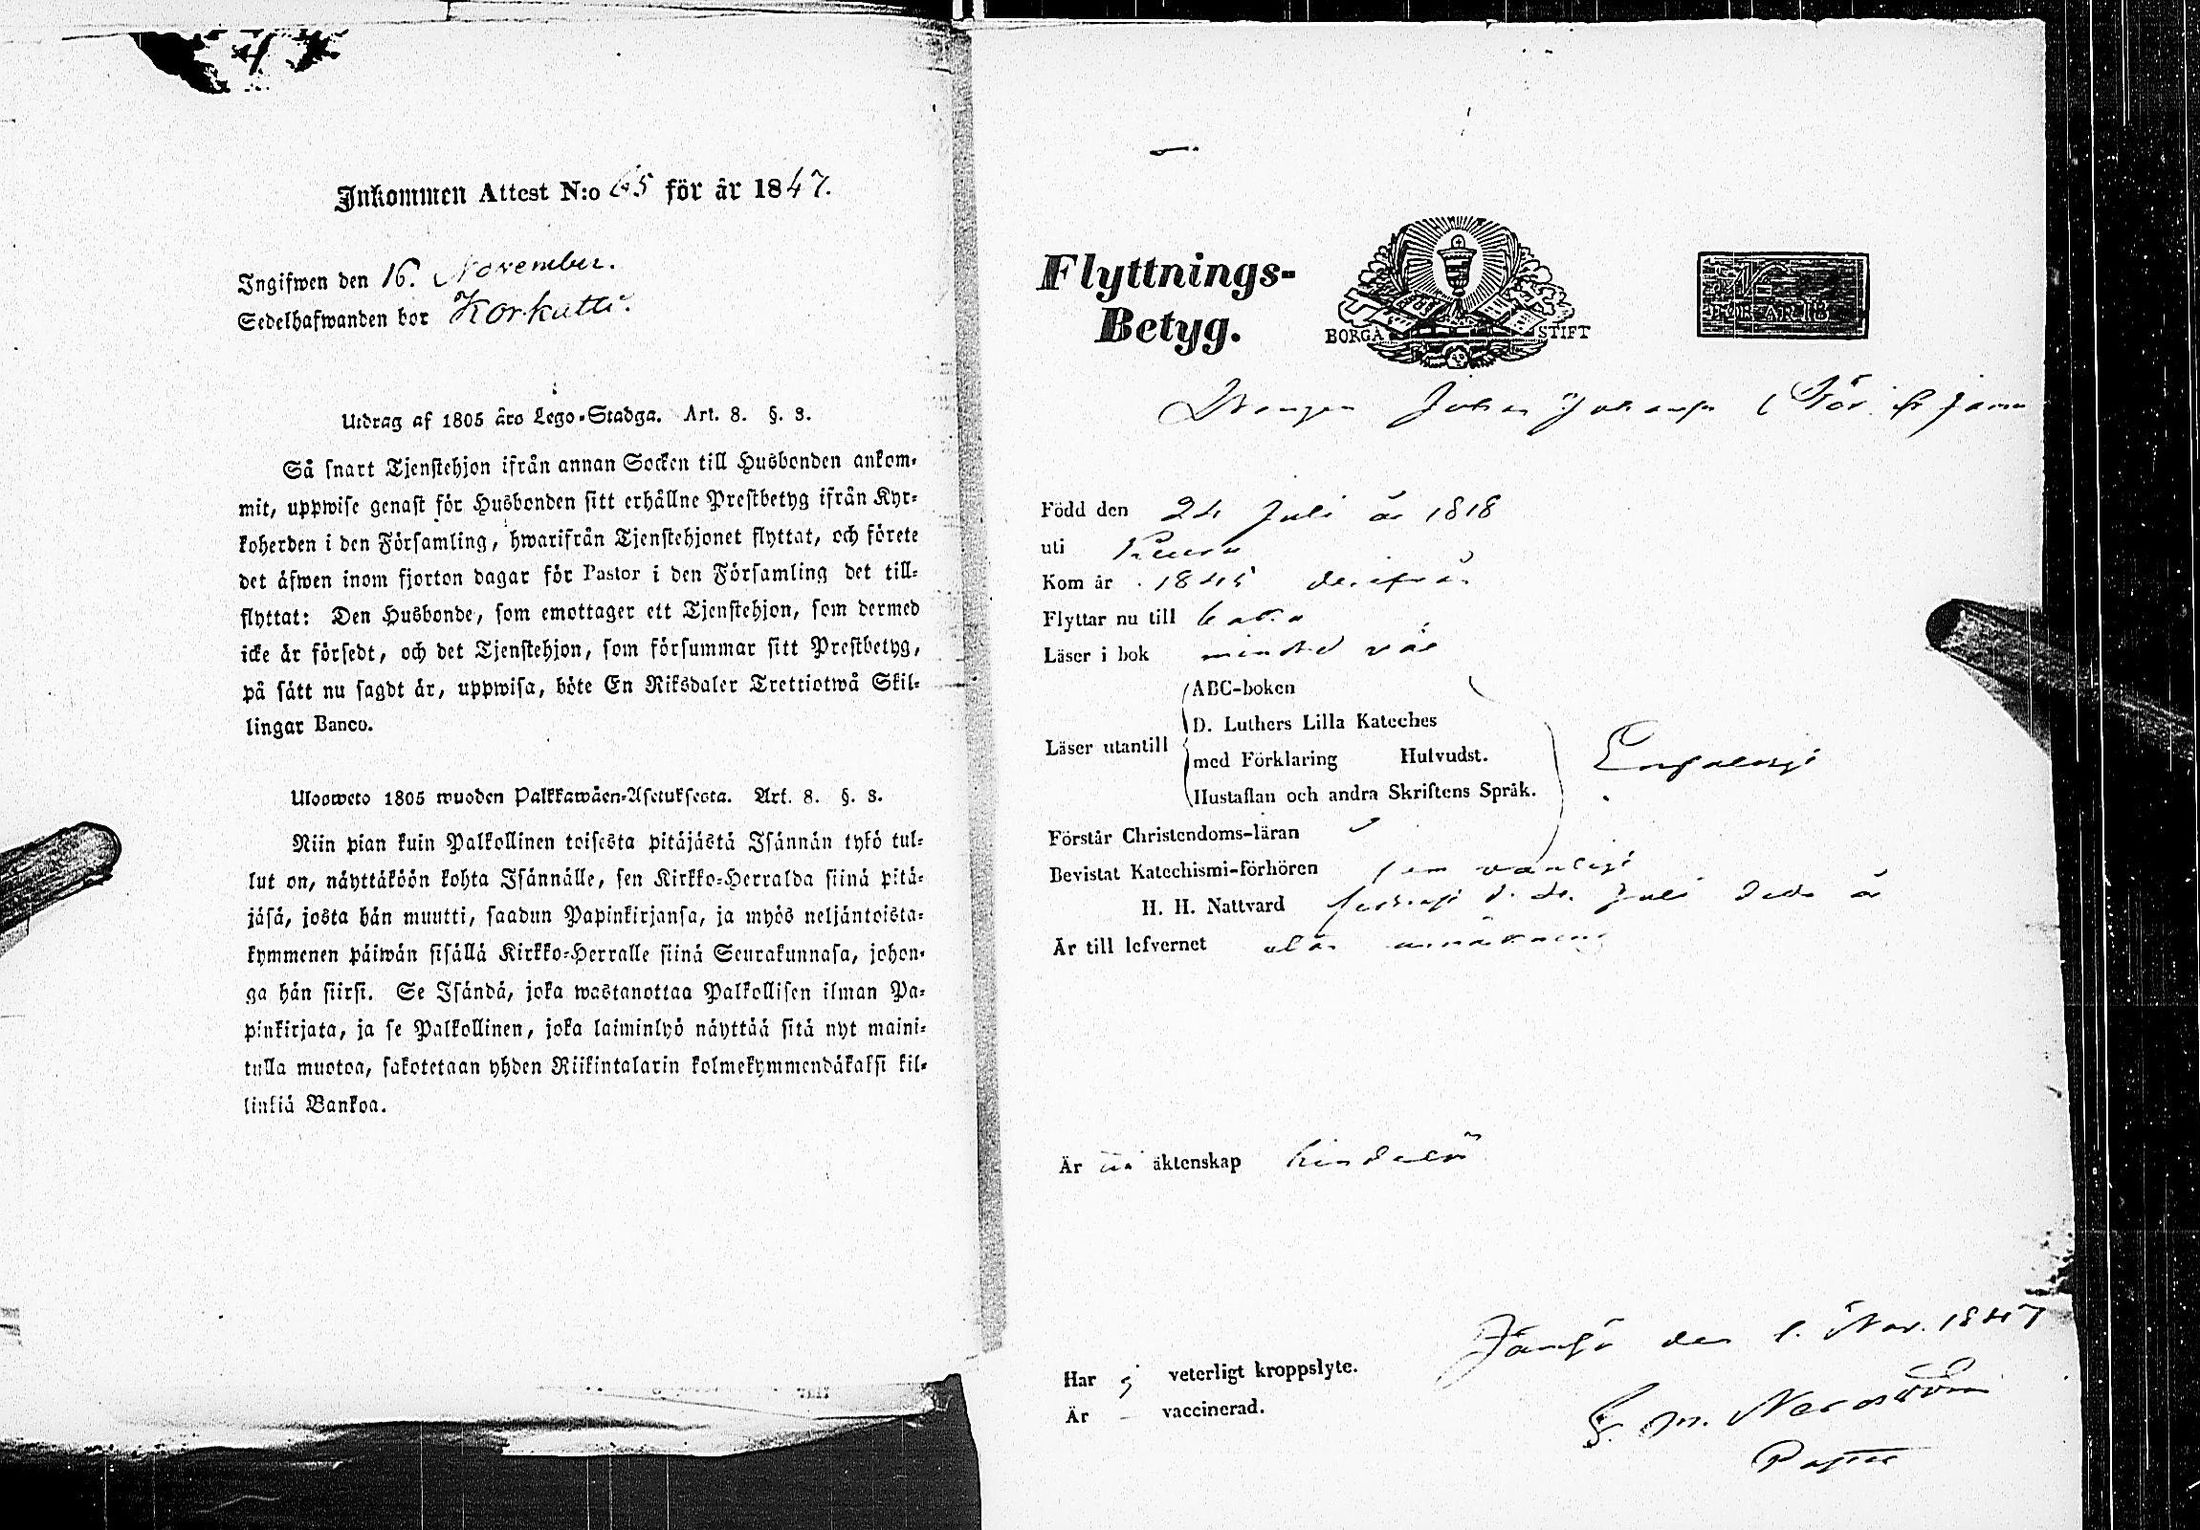 Inkommen Attest N:o 65 för år 1847.
Ingifwen den 16. November.
Sedelhafwanden bor Korkutti.
Utdrag af 1805 års Lego-Stadga. Art. 8. §. 8.
Så snart Tjenstehjon ifrån annan Socken till Husbonden ankom-
mit, uppwise genast för Husbonden sitt erhållne Prestbetyg ifrån Kyr-
koherden i den Församling, hwarifrån Tjenstehjonet flyttat, och förete
det äfwen inom fjorton dagar för Pastor i den Församling det till-
flyttat: Den Husbonde, som emottager ett Tjenstehjon, som dermed
icke är försedt, och det Tjenstehjon, som försummar sitt Prestbetyg,
på sätt nu sagdt är, uppwisa, böte En Riksdaler Trettiotwå Skil-
lingar Banco.
Uloosweto 1805 wuoden Palkkawäen-Asetuksesta. Art. 8. §. 8.
Niin pian kuin Palkollinen toisesta pitäjästä Isännän tykö tul-
lut on, näyttäköön kohta Isännälle, sen Kirkko-Herralda siinä pitä-
jäsä, josta hän muutti, saadun Papinkirjansa, ja myös neljäntoista-
kymmenen päiwän sisällä Kirkko-Herralle siinä Seurakunnasa, johon-
ga hän siirsi. Se Isändä, joka wastanottaa Palkollisen ilman Pa-
pinkirjata, ja se Palkollinen, joka laiminlyö näyttää sitä nyt maini-
tulla muotoa, sakotetaan yhden Riikintalarin kolmekymmendäkaksi kil-
linkiä Bankoa.
Flyttnings-
Betyg.
BORGÅ STIFT
N
FÖR ÅR 18
Drengen Johan Johansson
Född den 24 Juli år 1818
uti
Kom år 1845 derifrån
Flyttar nu till
Läser i bok mindre väl
ABC-boken
D. Luthers Lilla Kateches
Läser utantill
med Förklaring Hufvudst.
Hustaflan och andra Skriftens Språk.
Förstår Christendoms-läran
Bevistat Katechismi-förhören som vanligt
H. H. Nattvard Juli
Är till lefvernet utan anmärkning
Är äktenskap hinderlös
Har ej veterligt kroppslyte.
Är vaccinerad.
Jämsä den 1. Nov. 1847
M. Nordström
Pastor